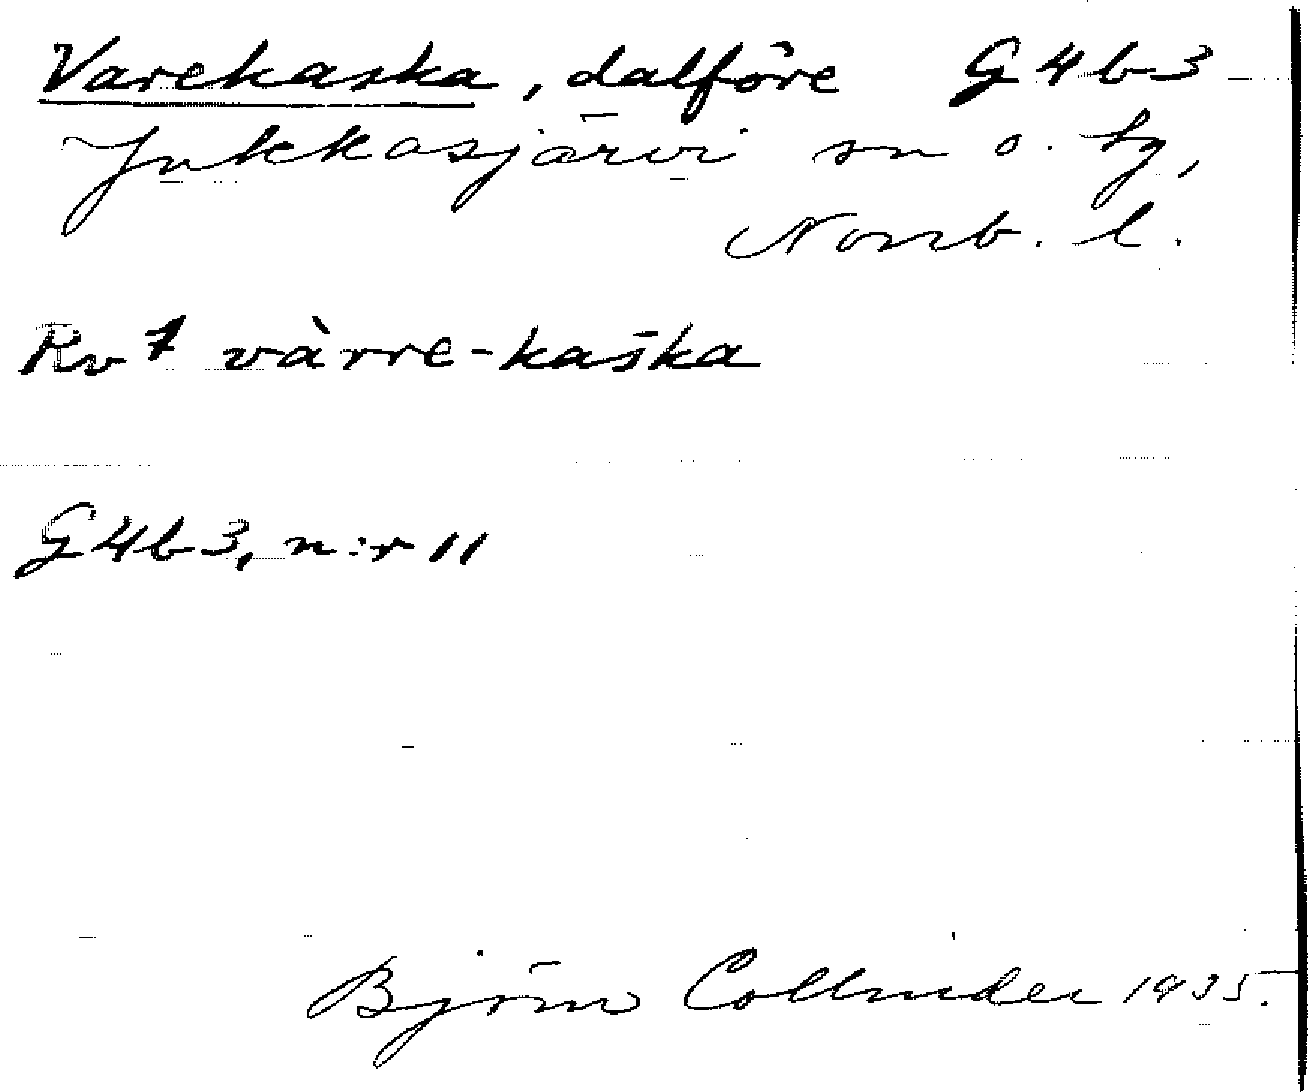 Varekaska, dalföre G4b3
Jukkasjärvi sn o. tg,
Norrb. l.
Rv 7 vàrre-kaška
G4b3, n:r 11
Björn Collinder 1935.